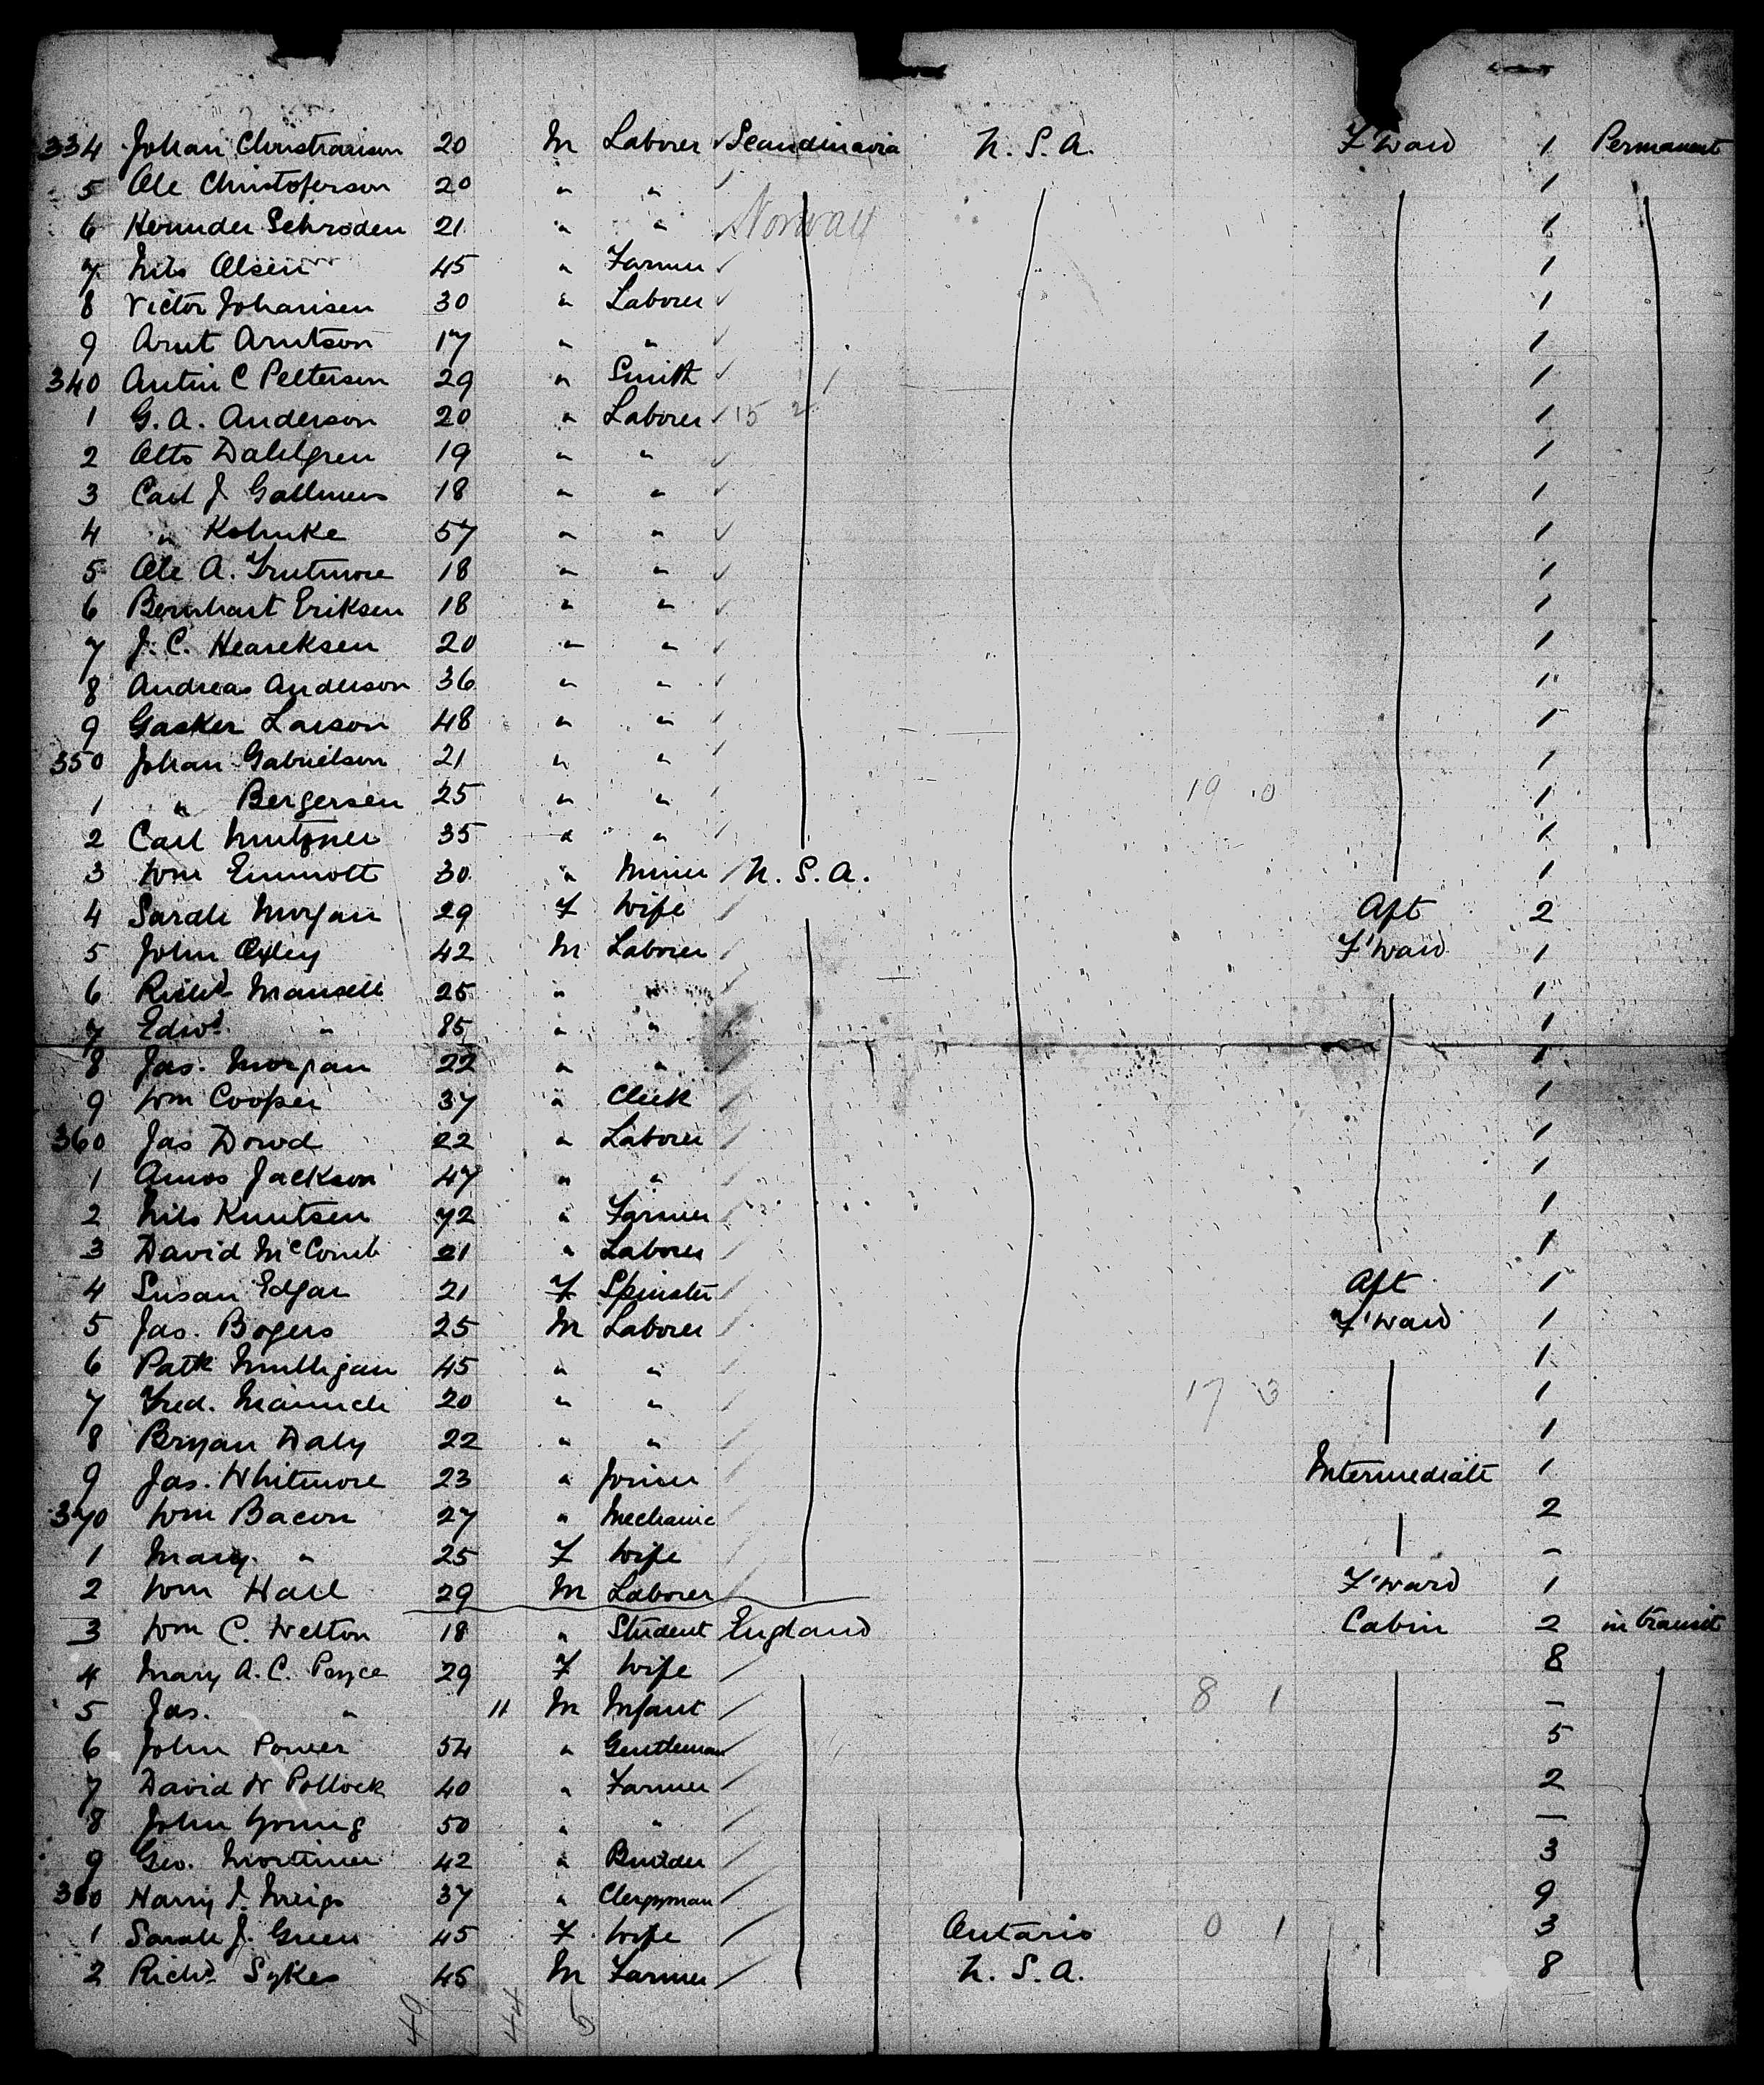 334 Johan Christianson 20 M Laborer ✓ Scandinavia U. S. A. F'ward 1 Permanent
5 Ole Christoferson 20 " " ✓ 1
6 Schroden 21 " " ✓ Norway 1
7 Nils Olsen 45 " Farmer ✓ 1
8 Victor Johansen 30 " Laborer ✓ 1
9 Arnt Arntson 17 " " ✓ 1
340 C Pettersen 29 " Smith ✓ 1
1 G. A. Anderson 20 " Laborer ✓ 15 2 1
2 Otto Dahlgren 19 " " ✓ 1
3 Carl J 18 " " ✓ 1
4 " Kohnke 57 " " ✓ 1
5 Ole A. 18 " " ✓ 1
6 Bernhart Eriksen 18 " " ✓ 1
7 J. C. 20 " " ✓ 1
8 Andreas Anderson 36 " " ✓ 1
9 Gasker Larson 48 " " ✓ 1
350 Johan Gabrielson 21 " " ✓ 1
1 " Bergersen 25 " " 19 0 1
2 Carl 35 " " 1
3 Wm Emmott 30 " Miner U. S. A. 1
4 Sarah Morgan 29 F Wife Aft 2
5 John Oxley 42 M Laborer F'ward 1
6 Richd Mansell 25 " " 1
7 Edwd " 85 " " 1
8 Jas. Morgan 22 " " 1
9 Wm Cooper 37 " Clerk 1
360 Jas Dowd 22 " Laborer 1
1 Amos Jackson 47 " " 1
2 Nils Knutsen 72 " Farmer 1
3 David McComb 21 " Laborer 1
4 Susan Edgar 21 F Spinster Aft 1
5 Jas. Bogers 25 M Laborer F'ward 1
6 Patk Mulligan 45 " " 1
7 Fred. 20 " " 17 3 1
8 Bryan Daly 22 " " 1
9 Jas. Whitmore 23 " Joiner Intermediate 1
370 Wm Bacon 27 " Mechanic 2
1 Mary " 25 F Wife –
2 Wm Hall 29 M Laborer F'ward 1
3 Wm C. Welton 18 " Student England Cabin 2 in transit
4 Mary A. C. Pryce 29 F Wife 8
5 Jas. " 11 M Infant 8 1 –
6 John Power 54 " Gentleman 5
7 David W Pollock 40 " Farmer 2
8 John Young 50 " " –
9 Geo. Mortimer 42 " Builder 3
380 Harry I. Meigs 37 " Clergyman 9
1 Sarah J. Green 45 F Wife Ontario 0 1 3
2 Richd Sykes 45 M Farmer U. S. A. 8
49 44 5